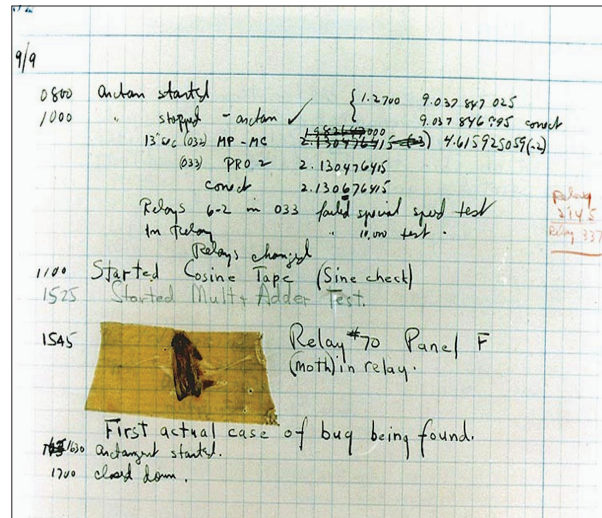 9/9
0800 Antan started { 1.2700 9.037 847 025
1000 " stopped - antan ✓ 9.037 846 995 conect
13"uc (032) MP - MC 2.130476415 4.615925059(-2)
(033) PRO 2 2.130476415
conect 2.130676415
Relays 6-2 in 033 failed special speed test
In Relay " 10,000 test.
Relay
2145
Relay 337
Relays changed
1100 Started Cosine Tape (Sine check)
1525 Started Mult+ Adder Test.
1545 Relay #70 Panel F
(moth) in relay.
First actual case of bug being found.
1630 antangent started.
1700 closed down.